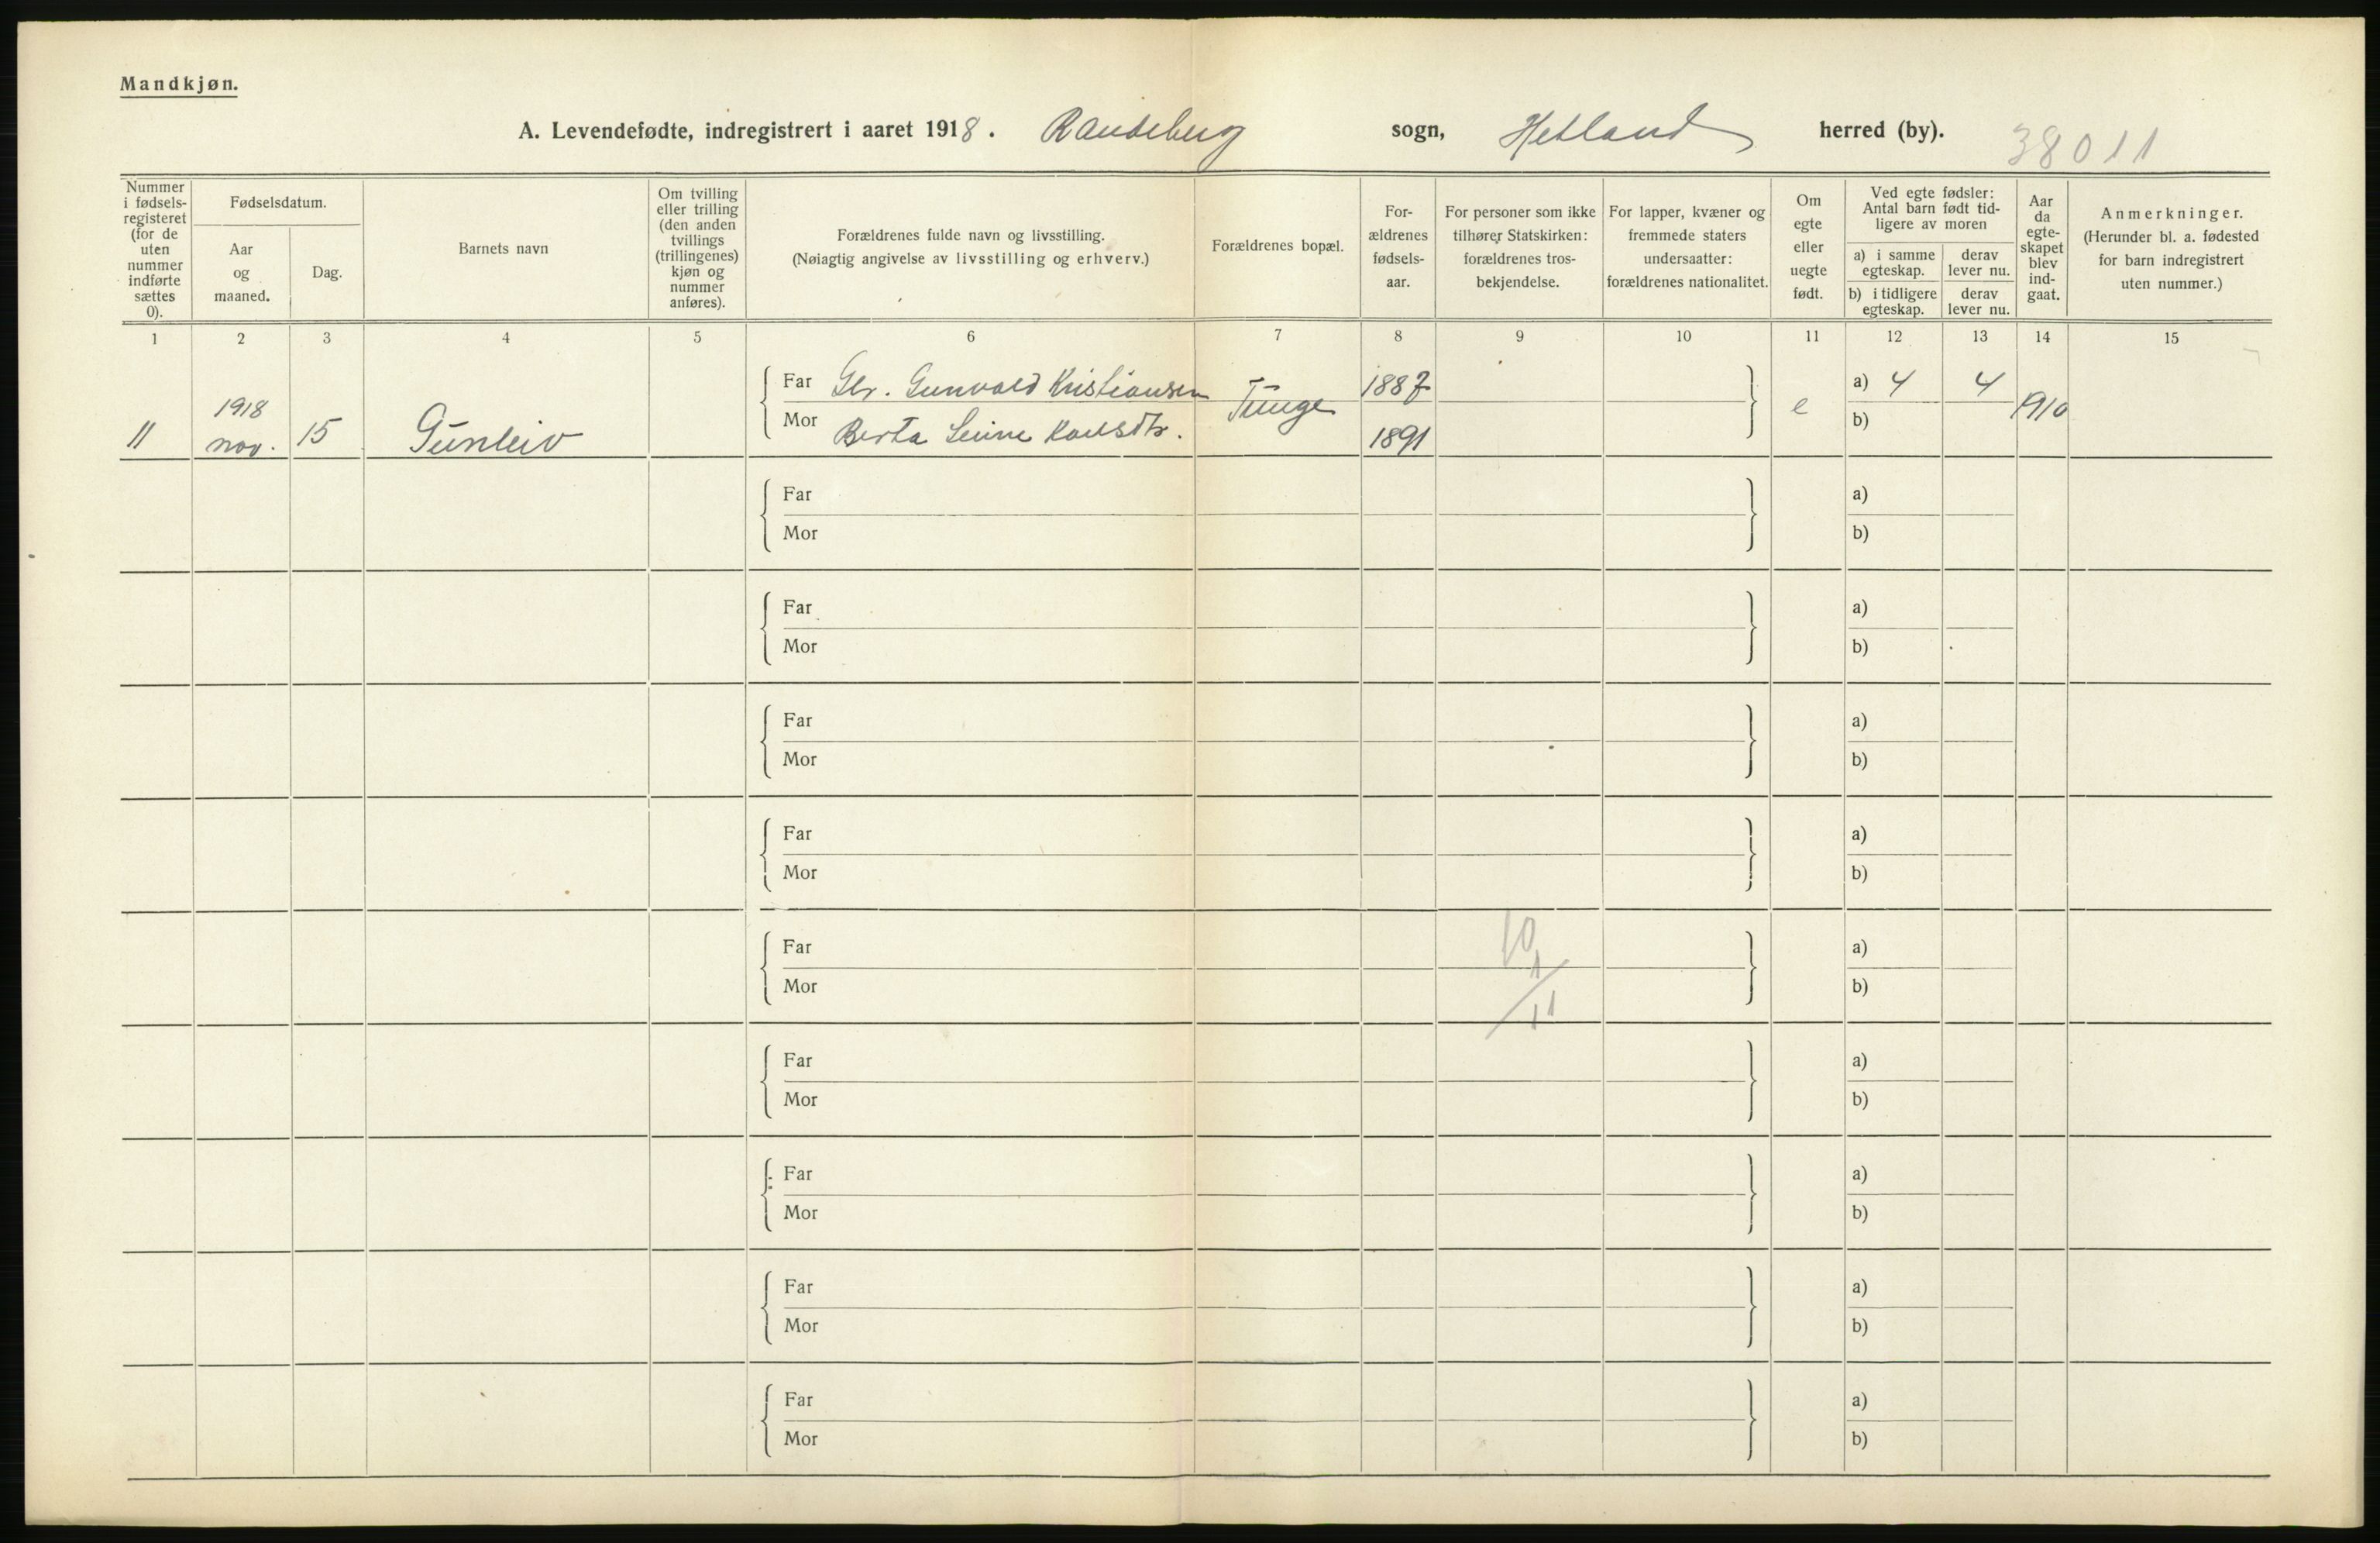 Mandkjøn.
A. Levendefødte, indregistrert i aaret 1918. Randeberg sogn, Hetland herred (by). 38011
Nummer i fødselsregisteret (for de uten nummer indførte sættes 0).
Fødselsdatum.
Aar og maaned.
Dag.
Barnets navn
Om tvilling eller trilling (den anden tvillings (trillingenes) kjøn og nummer anføres).
Forældrenes fulde navn og livsstilling.
(Nøiagtig angivelse av livsstilling og erhverv.)
Forældrenes bopæl.
Forældrenes fødselsaar.
For personer som ikke tilhører Statskirken: forældrenes trosbekjendelse.
For lapper, kvæner og fremmede staters undersaatter: forældrenes nationalitet.
Om egte eller uegte født.
Ved egte fødsler: Antal barn født tidligere av moren
a) i samme egteskap.
derav lever nu.
b) i tidligere egteskap.
derav lever nu.
Aar da egteskapet blev indgaat.
Anmerkninger.
(Herunder bl. a. fødested for barn indregistrert uten nummer.)
1 2 3 4 5 6 7 8 9 10 11 12 13 14 15
Far Gunvald Kristiansen Tunge 1887 e a) 4 4 1910
11 1918 nov. 15 Gunleiv
Mor Berta 1891 b)
Far a)
Mor b)
Far a)
Mor b)
Far a)
Mor b)
Far a)
Mor b)
Far 10 a)
Mor 11 b)
Far a)
Mor b)
Far a)
Mor b)
Far a)
Mor b)
Far a)
Mor b)